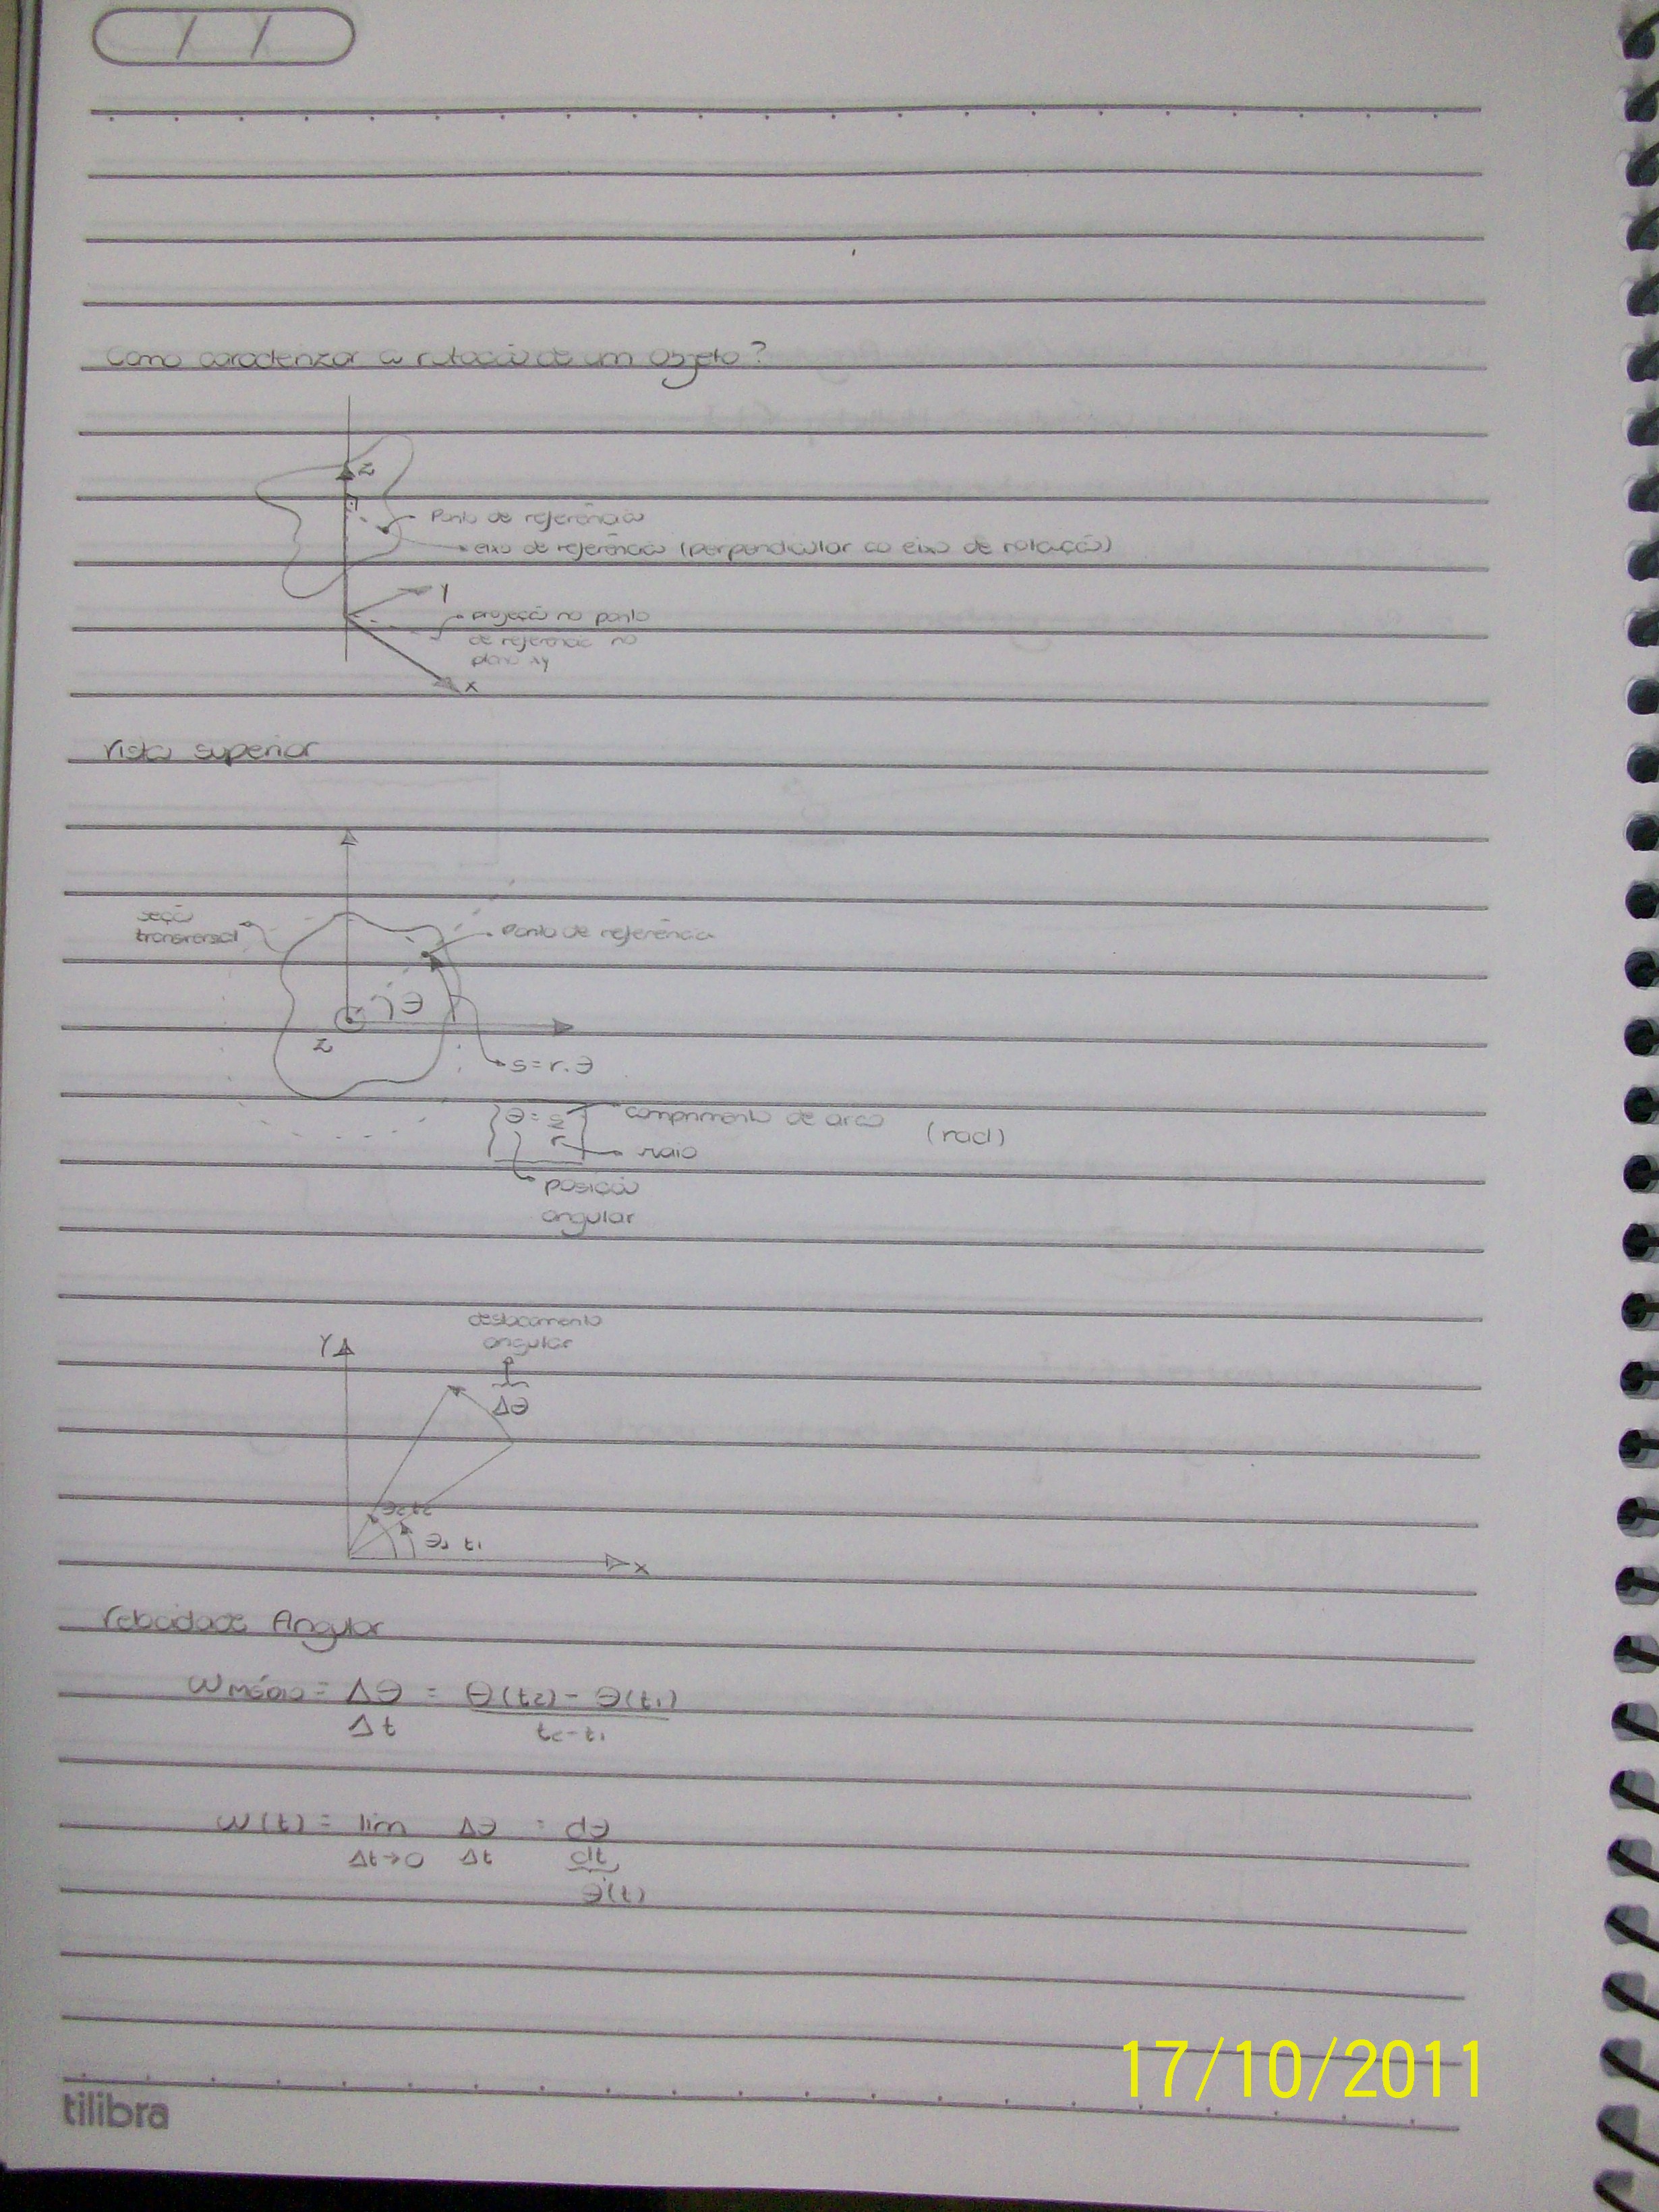 / /
Como caracterizar a rotação de um objeto?
z
Ponto de referência
eixo de referência (perpendicular ao eixo de rotação)
y
projeção no ponto
de referência no
plano xy
x
Vista superior
seção
transversal
Ponto de referência
θ
z
s=r.θ
θ = s/r
comprimento de arco (rad)
raio
posição
angular
deslocamento
angular
Y
Δθ
θ2 t2
θ1 t1
x
Velocidade Angular
ω média = Δθ/Δt = θ(t2) - θ(t1)/t2-t1
ω(t) = lim Δt→0 Δθ/Δt = dθ/dt
θ'(t)
17/10/2011
tilibra